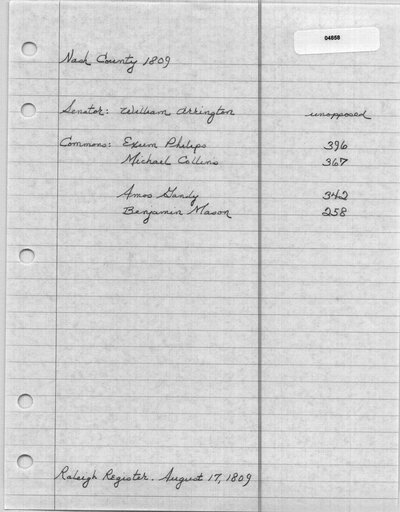 04858
Nash County 1809
Senator: William Arrington unopposed
Commons: Exum Philips 396
Michael Collins 367
Amos Gandy 342
Benjamin Mason 258
Raleigh Register. August 17, 1809